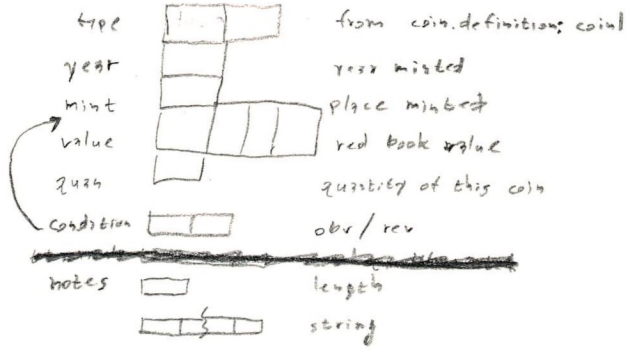 type from coin.definition; coin1
year year minted
mint place minted
value red book value
quan quantity of this coin
condition obv / rev
notes length
string